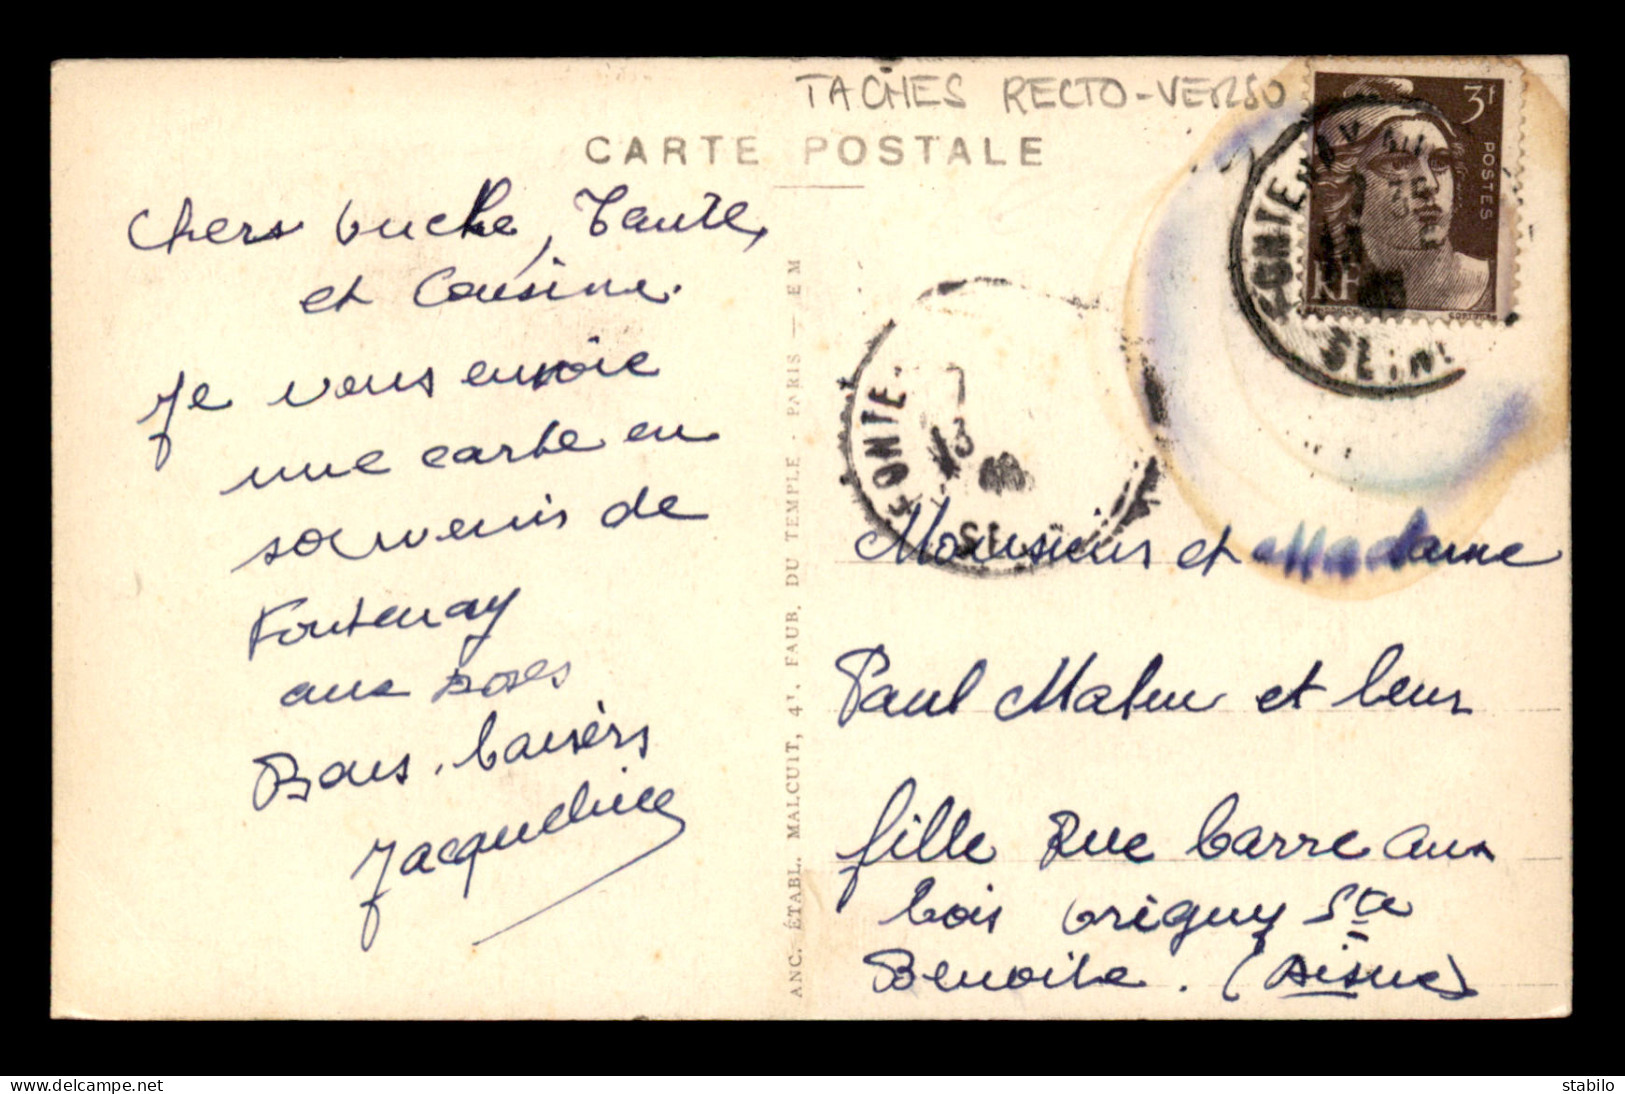 TACHES RECTO-VERSO
CARTE POSTALE
Chers oncle, Tante,
et Cousine.
Je vous envoie
une carte en
souvenir de
Fontenay
aux roses
Bons baisers
Jacqueline
ANC. ÉTABL. MALCUIT, 41, FAUB. DU TEMPLE - PARIS — E M
3f
POSTES
RF
FONTENAY
SEINE
FONTE
13
SEI
Monsieur et Madame
Paul Mahu et leur
fille Rue barre aux
bois Origny Ste
Benoite. (Aisne)
stabilo
Delcampe.net